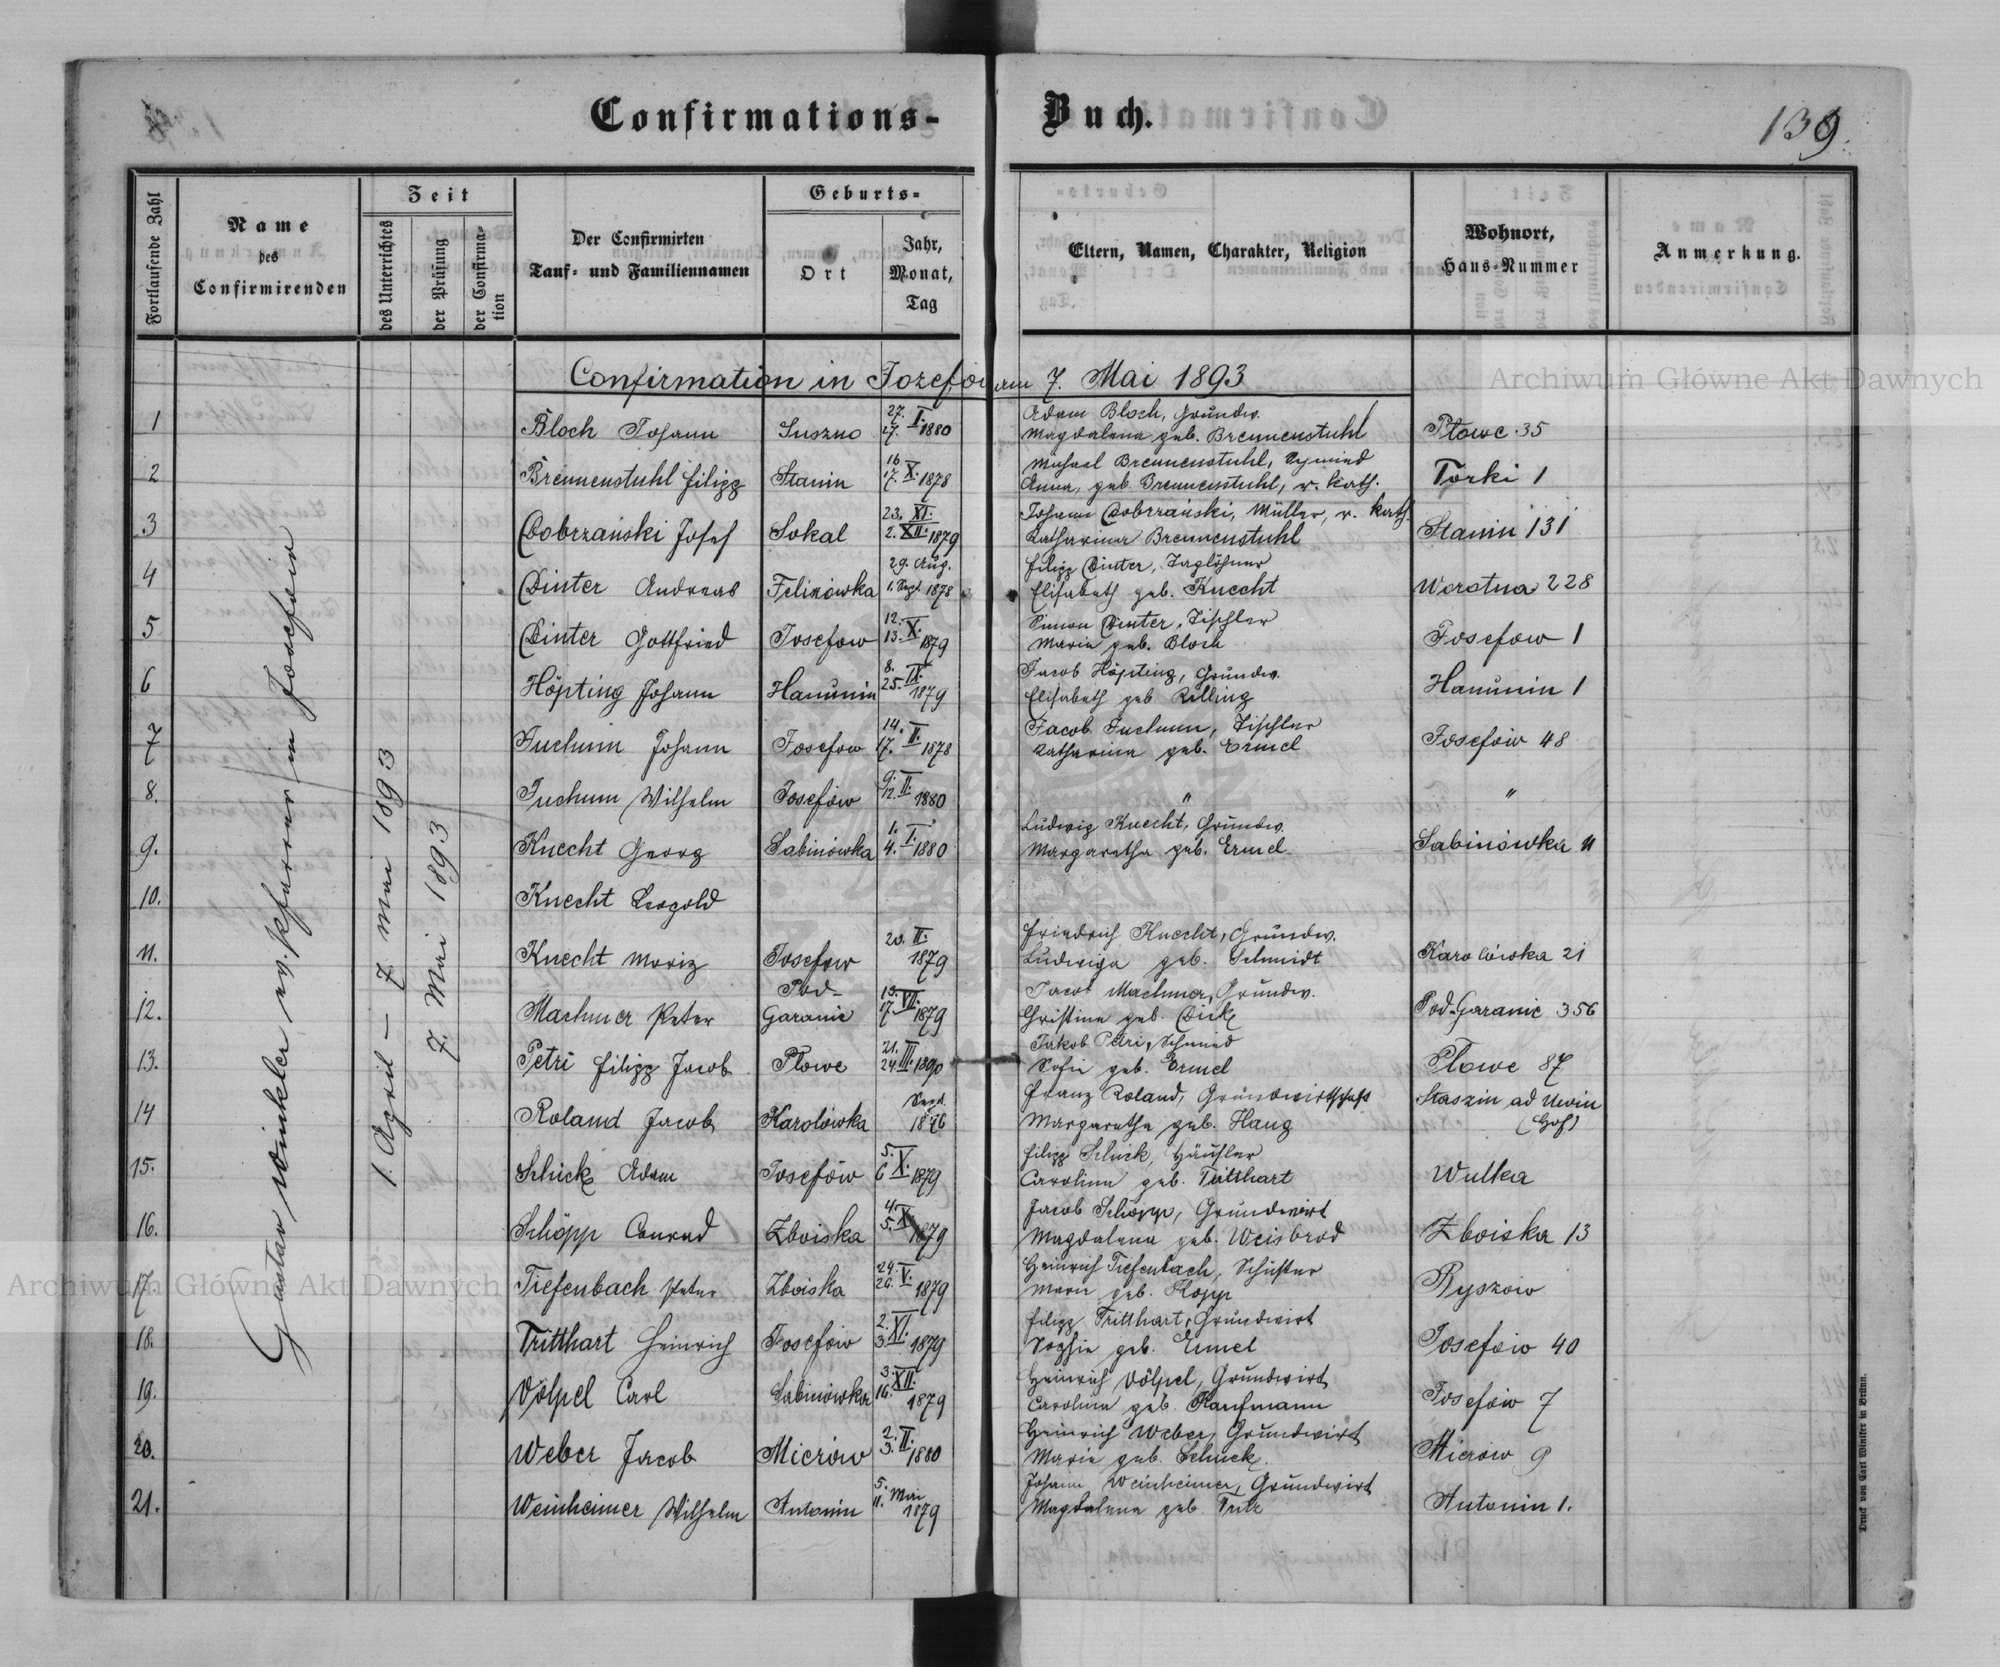 Confirmations-Buch.
139.
Fortlaufende Zahl
Name des Confirmirenden
Zeit
des Unterrichtes
der Prüfung
der Confirmation
Der Confirmirten Tauf- und Familiennamen
Geburts-
Ort
Jahr, Monat, Tag
Eltern, Namen, Charakter, Religion
Wohnort, Haus-Nummer
Anmerkung.
Confirmation in Josefów am 7. Mai 1893
Gustav Winkler ev. Pfarrer in Josefów
1. April – 7. Mai 1893
7. Mai 1893
1 Bloch Johann Suszno 27. 27. I. 1880 Adam Bloch, Grundw.
Magdalena geb. Brennenstuhl Płowe 35
2 Brennenstuhl Filipp Stanin 16. 17. X. 1878 Michael Brennenstuhl, Schmied
Anna, geb. Brennenstuhl, r. kath. Torki 1
3 Dobrzański Josef Sokal 23. XI. 2. XII. 1879 Johann Dobrzański, Müller, r. kath.
Katharina Brennenstuhl Stanin 131
4 Dinter Andreas Felixówka 29. Aug. 1. Sept. 1878 Filipp Dinter, Taglöhner
Elisabeth geb. Knecht Worotna 228
5 Dinter Gottfried Josefow 12. 13. X. 1879 Simon Dinter, Tischler
Maria geb. Bloch Josefow 1
6 Höpting Johann Hanunin 8. 25. IX. 1879 Jacob Höpting, Grundw.
Elisabeth geb. Rilling Hanunin 1
7 Juchum Johann Josefow 14. 17. II. 1878 Jacob Juchum, Tischler
Katharina geb. Ermel Josefów 48
8. Juchum Wilhelm Josefów 9. 12. II. 1880 " "
9. Knecht Georg Sabinówka 1. 4. I. 1880 Ludwig Knecht, Grundw.
Margaretha geb. Ermel Sabinówka 11
10. Knecht Leopold
11. Knecht Moriz Josefow 20. II. 1879 Friedrich Knecht, Grundw.
Ludwiga geb. Schmidt Karolówka 21
12. Machmer Peter Pod-Garanie 13. 17. VII. 1879 Jacob Machmer, Grundw.
Christine geb. Dick Pod-Garanie 356
13. Petri Filipp Jacob Płowe 21. 24. III. 1890 Jakob Petri, Schmied
Sofie geb. Ermel Płowe 87
14 Roland Jacob Karolówka Sept. 1876 Franz Roland, Grundwirthschaft
Margaretha geb. Haug Staszin ad Uwin (Hof)
15. Schick Adam Josefów 5. 6 X. 1879 Filipp Schick, Häusler
Carolina geb. Tritthart Wulka
16. Schöpp Conrad Zboiska 4. 5. X. 1879 Jacob Schöpp, Grundwirt
Magdalena geb. Weisbrod Zboiska 13
17. Tiefenbach Peter Zboiska 24. 26. V. 1879 Heinrich Tiefenbach, Schuster
Marie geb. Kopp Ryszow
18. Tritthart Heinrich Josefów 2. 3. XI. 1879 Filipp Tritthart, Grundwirt
Sophie geb. Ermel Josefów 40
19. Völpel Carl Sabinówka 3. 16. XII. 1879 Heinrich Völpel, Grundwirt
Carolina geb. Kaufmann Josefów 7
20. Weber Jacob Mierów 2. 3. II. 1880 Heinrich Weber, Grundwirt
Marie geb. Schick. Mierow 9
21. Weinheimer Wilhelm Antonin 5. 11. Mai 1879 Johann Weinheimer, Grundwirt
Magdalena geb. Fritz Antonin 1.
Druck von Carl Winiker in Brünn.
Archiwum Główne Akt Dawnych
Archiwum Główne Akt Dawnych